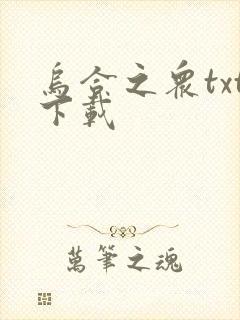 烏合之衆txt
下載
萬筆之魂